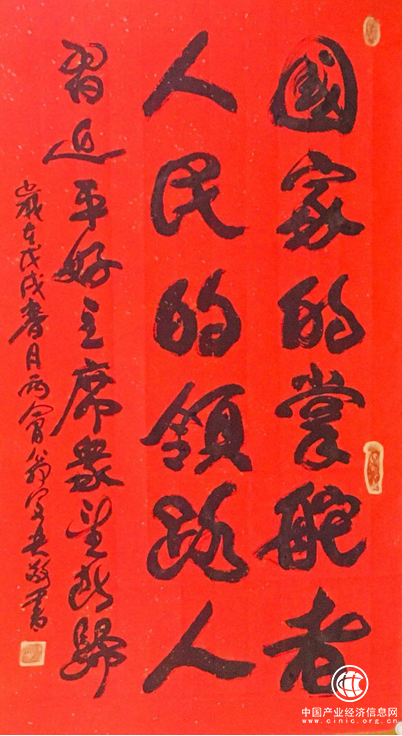 國家的掌舵者
人民的領路人
習近平好主席眾望所歸
歲在戊戌春月兩會翁寫共敬書
中国产业经济信息网
www.cinic.org.cn